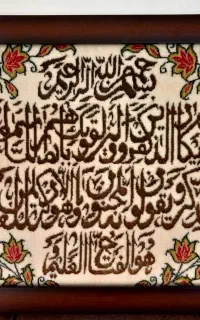 بسم الله الرحمن الرحيم
يكاد الذين كفروا ليزلقونك بابصارهم لما
الذكر ويقولون انه لمجنون وما هو الا ذكر
هو الفتاح العليم